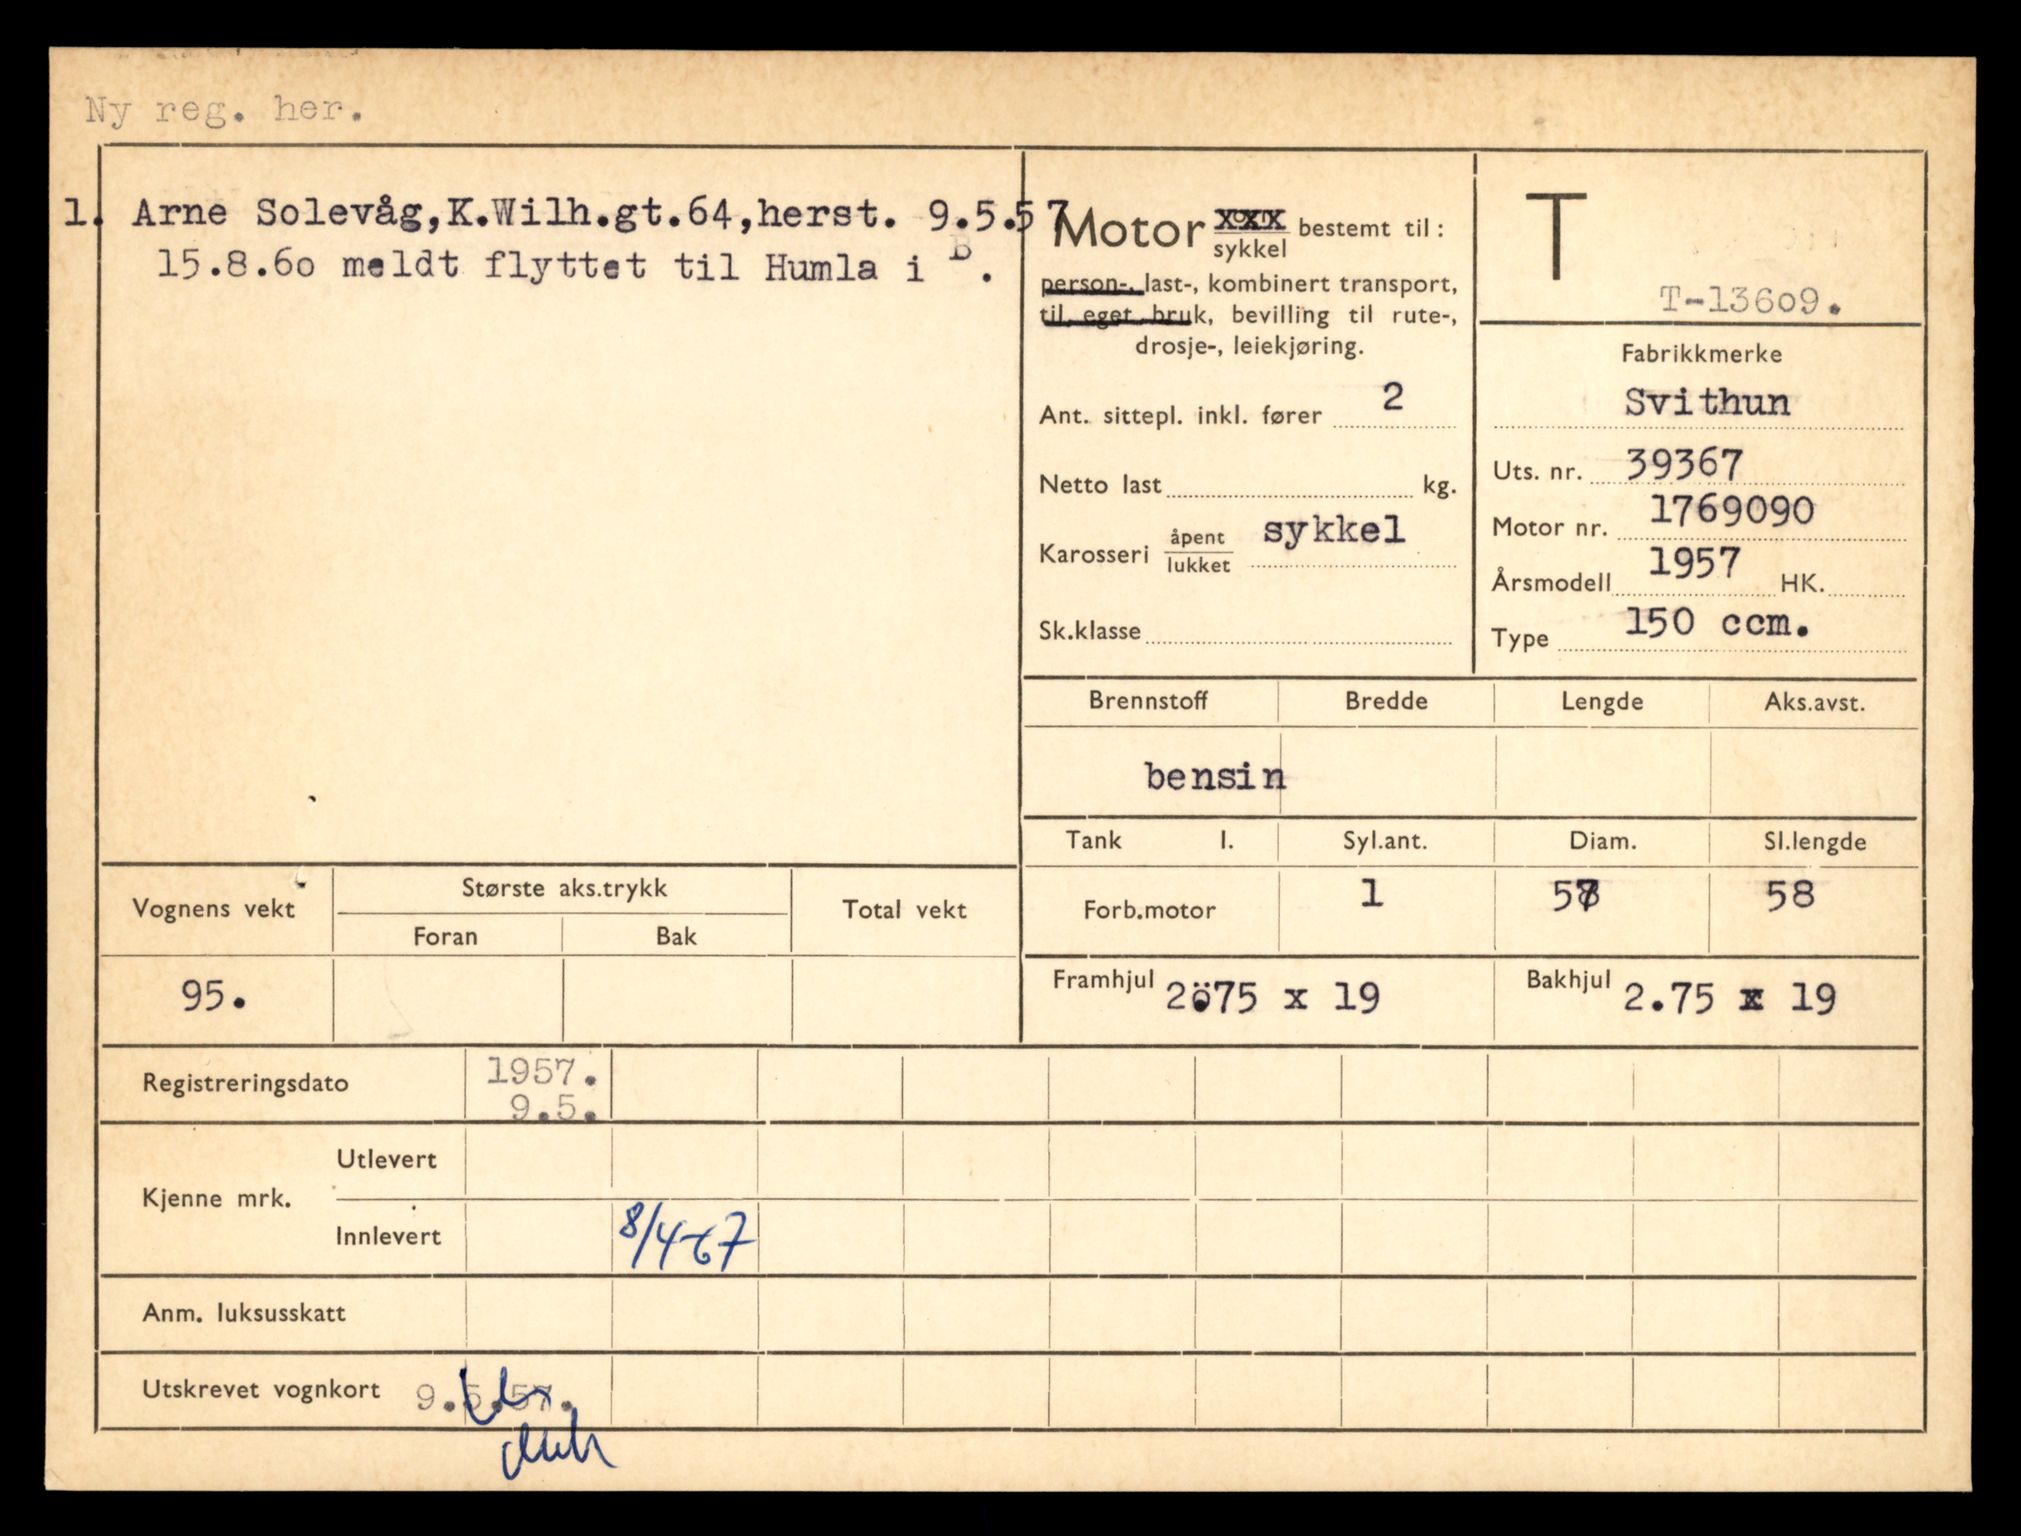 Ny reg. her.
1. Arne Solevåg,K.Wilh.gt.64,herst. 9.5.57
15.8.60 meldt flyttet til Humla i B.
Motor xxx sykkel bestemt til:
person-, last-, kombinert transport,
til eget bruk, bevilling til rute-,
drosje-, leiekjøring.
Ant. sittepl. inkl. fører 2
Netto last kg.
Karosseri åpent lukket sykkel
Sk.klasse
T
T-13609.
Fabrikkmerke
Svithun
Uts. nr. 39367
Motor nr. 1769090
Årsmodell 1957 HK.
Type 150 ccm.
Brennstoff Bredde Lengde Aks.avst.
bensin
Tank l. Syl.ant. Diam. Sl.lengde
Forb.motor 1 57 58
Framhjul 2.75 x 19 Bakhjul 2.75 x 19
Vognens vekt Største aks.trykk Total vekt
Foran Bak
95.
Registreringsdato 1957.
9.5.
Kjenne mrk. Utlevert
Innlevert 8/4-67
Anm. luksusskatt
Utskrevet vognkort 9.5.57.